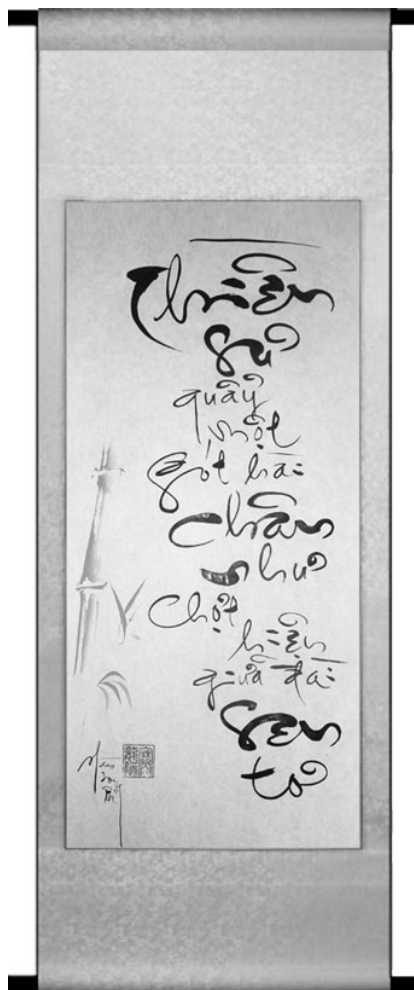 Thiền
Sư
quẩy
một
gót hài
Chân
như
Chợt
hiện
giữa đài
Sen
tơ